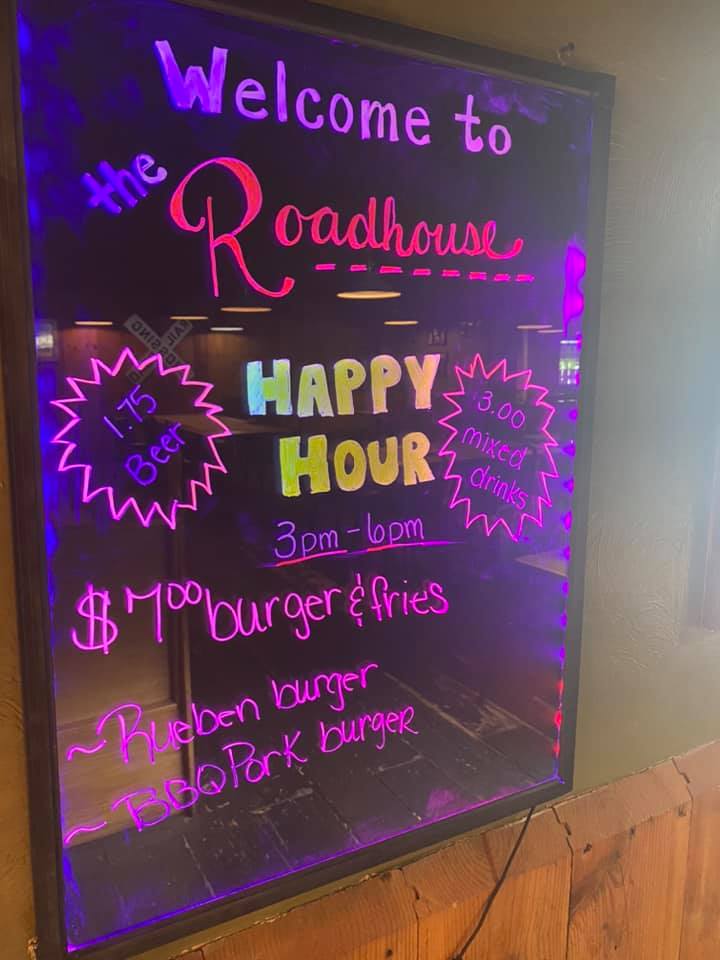 Welcome to
the Roadhouse
HAPPY
HOUR
1.75
Beer
3.00
mixed
drinks
3pm-6pm
$7.00 burger & fries
~Rueben burger
~BBQ Pork burger
RAIL CROSSING